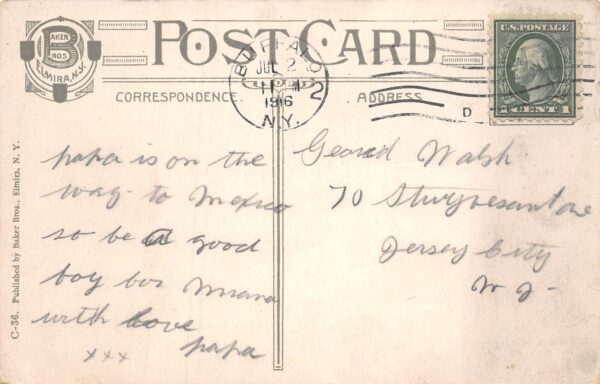 BAKER
B
BROS
ELMIRA, N.Y.
POST CARD
BUFFALO
JUL 2
1916
N.Y.
2
D
U.S. POSTAGE
1 CENT 1
CORRESPONDENCE.
ADDRESS
C-36. Published by Baker Bros., Elmira, N. Y.
papa is on the
way to Mexico
so be a good
boy for Mama
with love
papa
xxx
Walsh
70 Stuyvesant ave
Jersey City
N J-